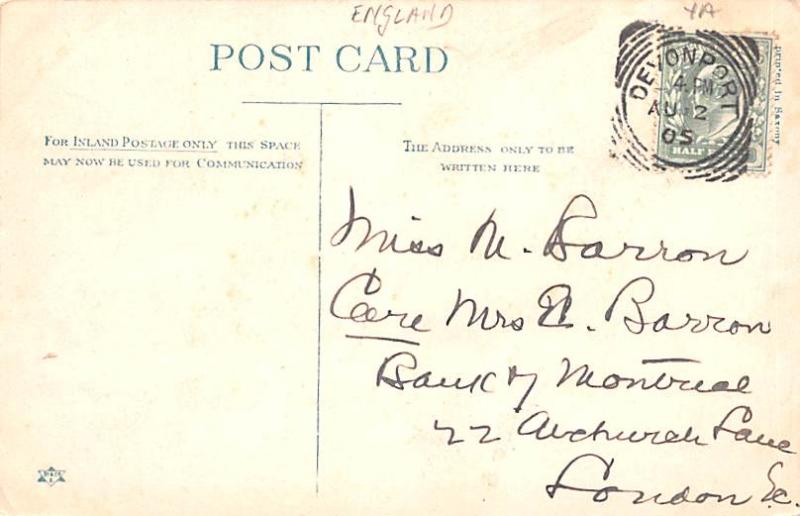 ENGLAND
POST CARD
FOR INLAND POSTAGE ONLY THIS SPACE
MAY NOW BE USED FOR COMMUNICATION
THE ADDRESS ONLY TO BE
WRITTEN HERE
DEVONPORT
4. PM
AU 2
05
HALF
Printed in Saxony
Miss M. Barron
Care Mrs E. Barron
Bank of Montreal
22 Abchurch Lane
London E.C.